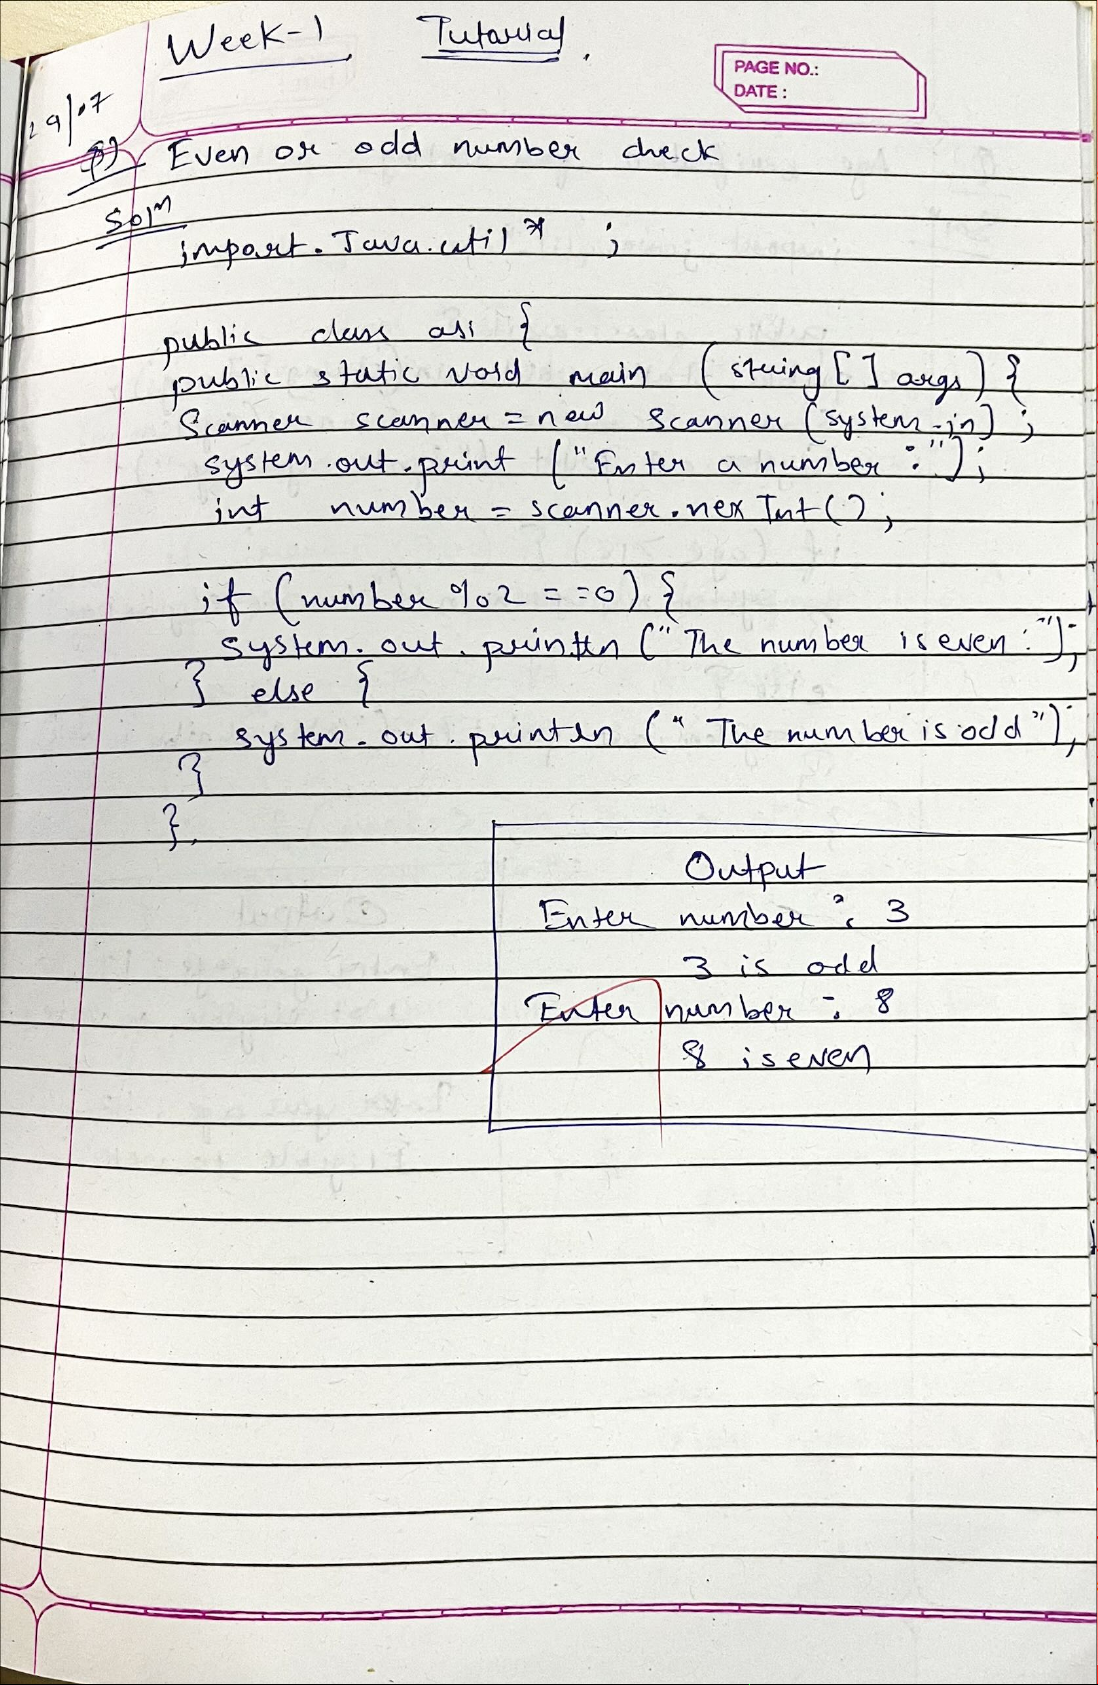 Week-1 Tutorial.
PAGE NO.:
DATE:
29/07
Q) Even or odd number check
Solⁿ
import.Java.util * ;
public class asi {
public static void main (string [] args) {
Scanner scanner = new scanner (system.in) ;
system.out.print ("Enter a number :");
int number = scanner.nex Int ();
if (number %2 = =0) {
system.out.println ("The number is even :");
} else {
system.out.println (" The number is odd");
}
}.
Output
Enter number : 3
3 is odd
Enter number : 8
8 is even